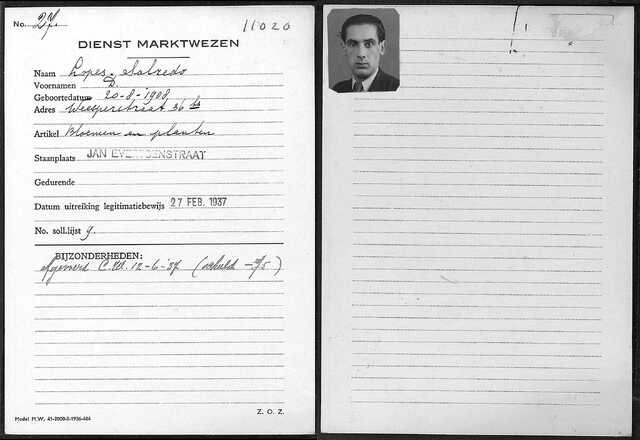 No. 27. 11020
DIENST MARKTWEZEN
Naam Lopes Salzedo
Voornamen D.
Geboortedatum 20-8-1908
Adres Weesperstraat 36 hs
Artikel Bloemen en planten
Staanplaats JAN EVERTSENSTRAAT
Gedurende
Datum uitreiking legitimatiebewijs 27 FEB. 1937
No. soll.lijst 9.
BIJZONDERHEDEN:
afgevoerd 12-6-'37 (schuld
Model M.W. 41-2000-8-1936-484
Z. O. Z.